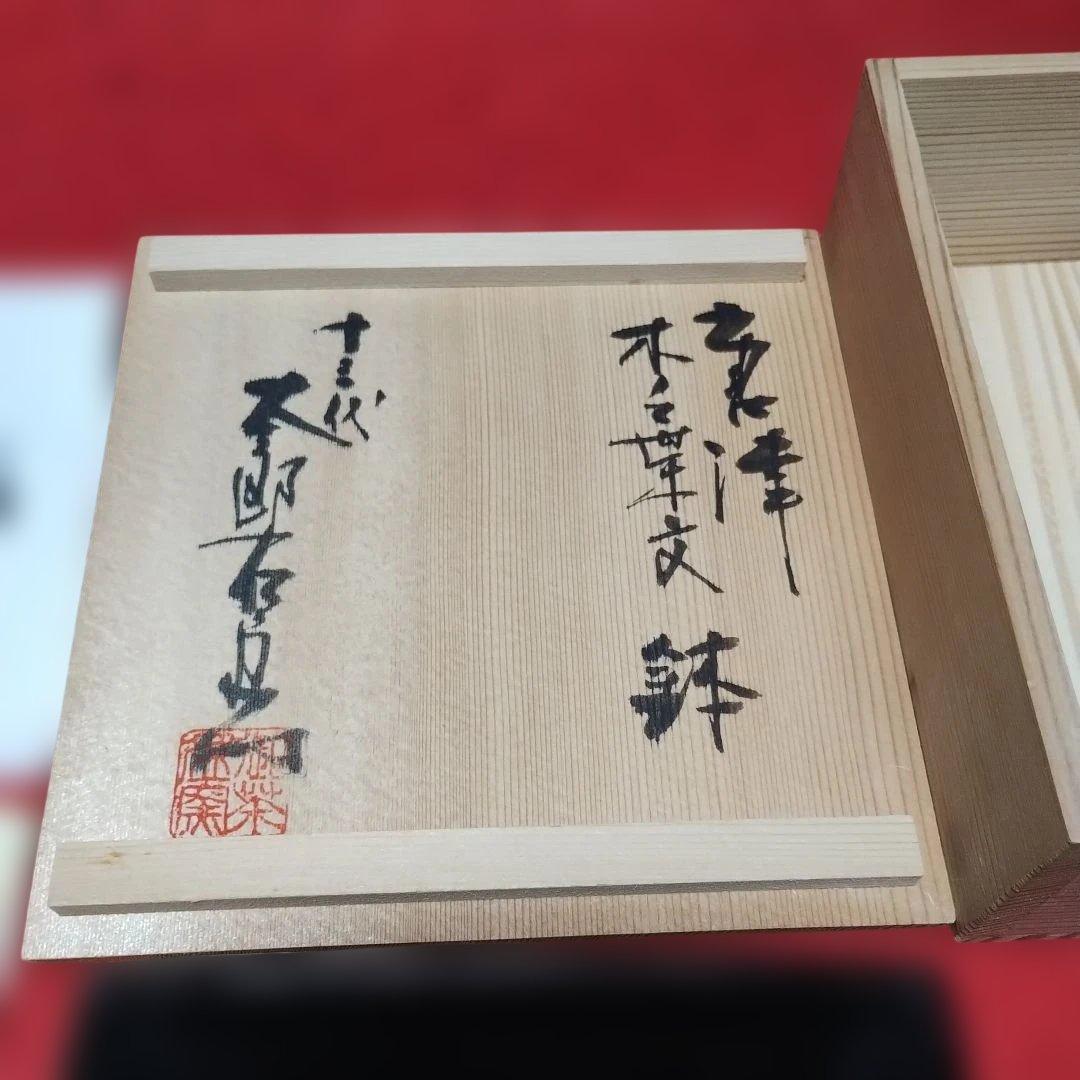 唐津
木ノ葉文 鉢
十三代
太郎右衛門